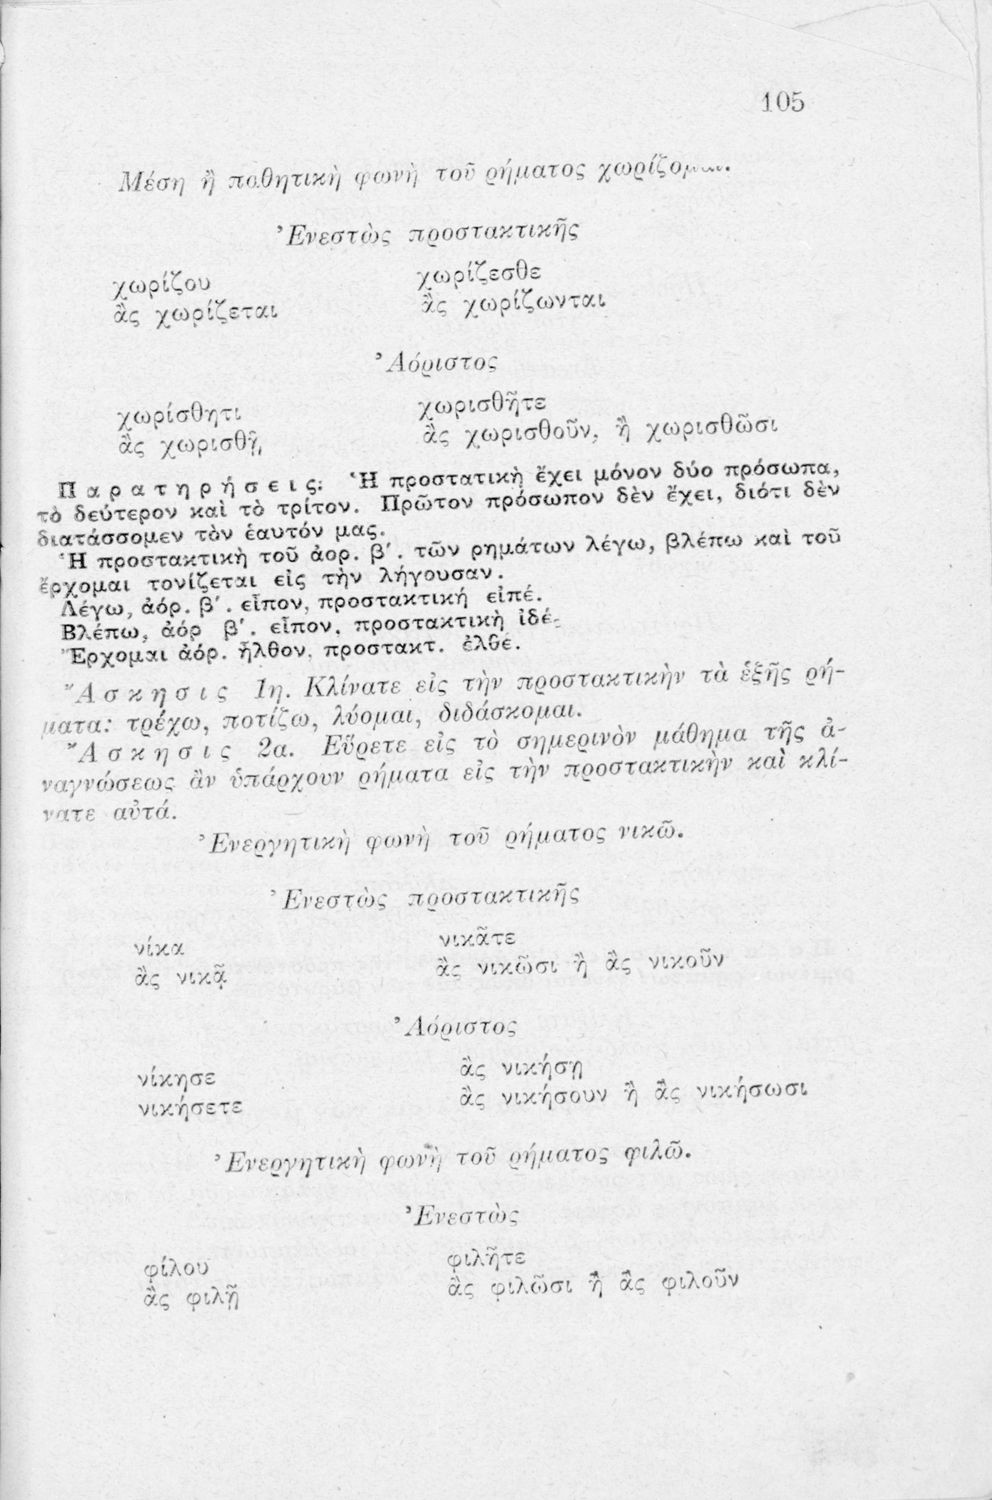 105
Μέση ἢ παθητικὴ φωνὴ τοῦ ρήματος
Ἐνεστὼς προστακτικῆς
χωρίζου χωρίζεσθε
ἂς χωρίζεται ἂς χωρίζωνται
Ἀόριστος
χωρίσθητι χωρισθῆτε
ἂς χωρισθῇ, ἂς χωρισθοῦν, ἢ χωρισθῶσι
Παρατηρήσεις: Ἡ προστατικὴ ἔχει μόνον δύο πρόσωπα,
τὸ δεύτερον καὶ τὸ τρίτον. Πρῶτον πρόσωπον δὲν ἔχει, διότι δὲν
διατάσσομεν τὸν ἑαυτόν μας.
Ἡ προστακτικὴ τοῦ ἀορ. β΄. τῶν ρημάτων λέγω, βλέπω καὶ τοῦ
ἔρχομαι τονίζεται εἰς τὴν λήγουσαν.
Λέγω, ἀόρ. β΄. εἶπον, προστακτική εἰπέ.
Βλέπω, ἀόρ β΄. εἶπον, προστακτικὴ ἰδέ.
Ἔρχομαι ἀόρ. ἦλθον, προστακτ. ἐλθέ.
Ἄσκησις 1η. Κλίνατε εἰς τὴν προστακτικὴν τὰ ἑξῆς ρή-
ματα: τρέχω, ποτίζω, λύομαι, διδάσκομαι.
Ἄσκησις 2α. Εὕρετε εἰς τὸ σημερινὸν μάθημα τῆς ἀ-
ναγνώσεως ἂν ὑπάρχουν ρήματα εἰς τὴν προστακτικὴν καὶ κλί-
νατε αὐτά.
Ἐνεργητικὴ φωνὴ τοῦ ρήματος νικῶ.
Ἐνεστὼς προστακτικῆς
νίκα νικᾶτε
ἂς νικᾷ ἂς νικῶσι ἢ ἂς νικοῦν
Ἀόριστος
νίκησε ἂς νικήσῃ
νικήσετε ἂς νικήσουν ἢ ἂς νικήσωσι
Ἐνεργητικὴ φωνὴ τοῦ ρήματος φιλῶ.
Ἐνεστὼς
φίλου φιλῆτε
ἂς φιλῇ ἂς φιλῶσι ἢ ἂς φιλοῦν